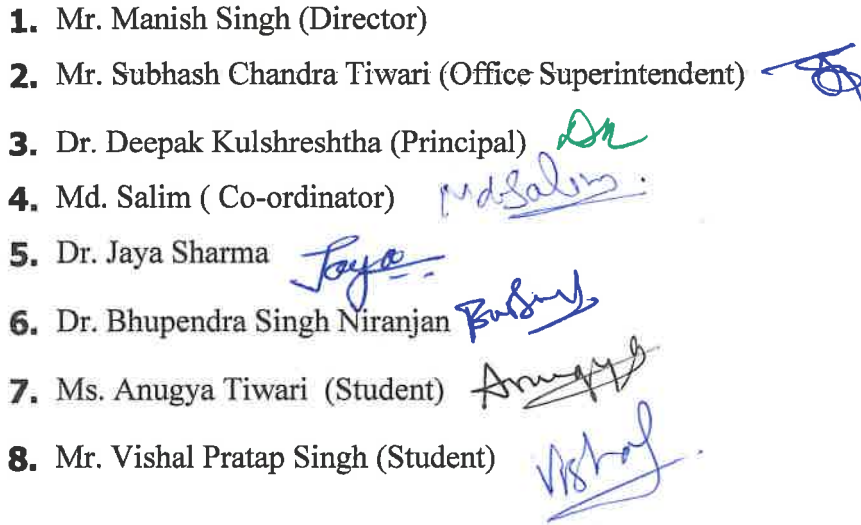 1. Mr. Manish Singh (Director)
2. Mr. Subhash Chandra Tiwari (Office Superintendent)
3. Dr. Deepak Kulshreshtha (Principal)
4. Md. Salim ( Co-ordinator) Md Salim
5. Dr. Jaya Sharma Jaya
6. Dr. Bhupendra Singh Niranjan
7. Ms. Anugya Tiwari (Student) Anugya
8. Mr. Vishal Pratap Singh (Student) Vishal